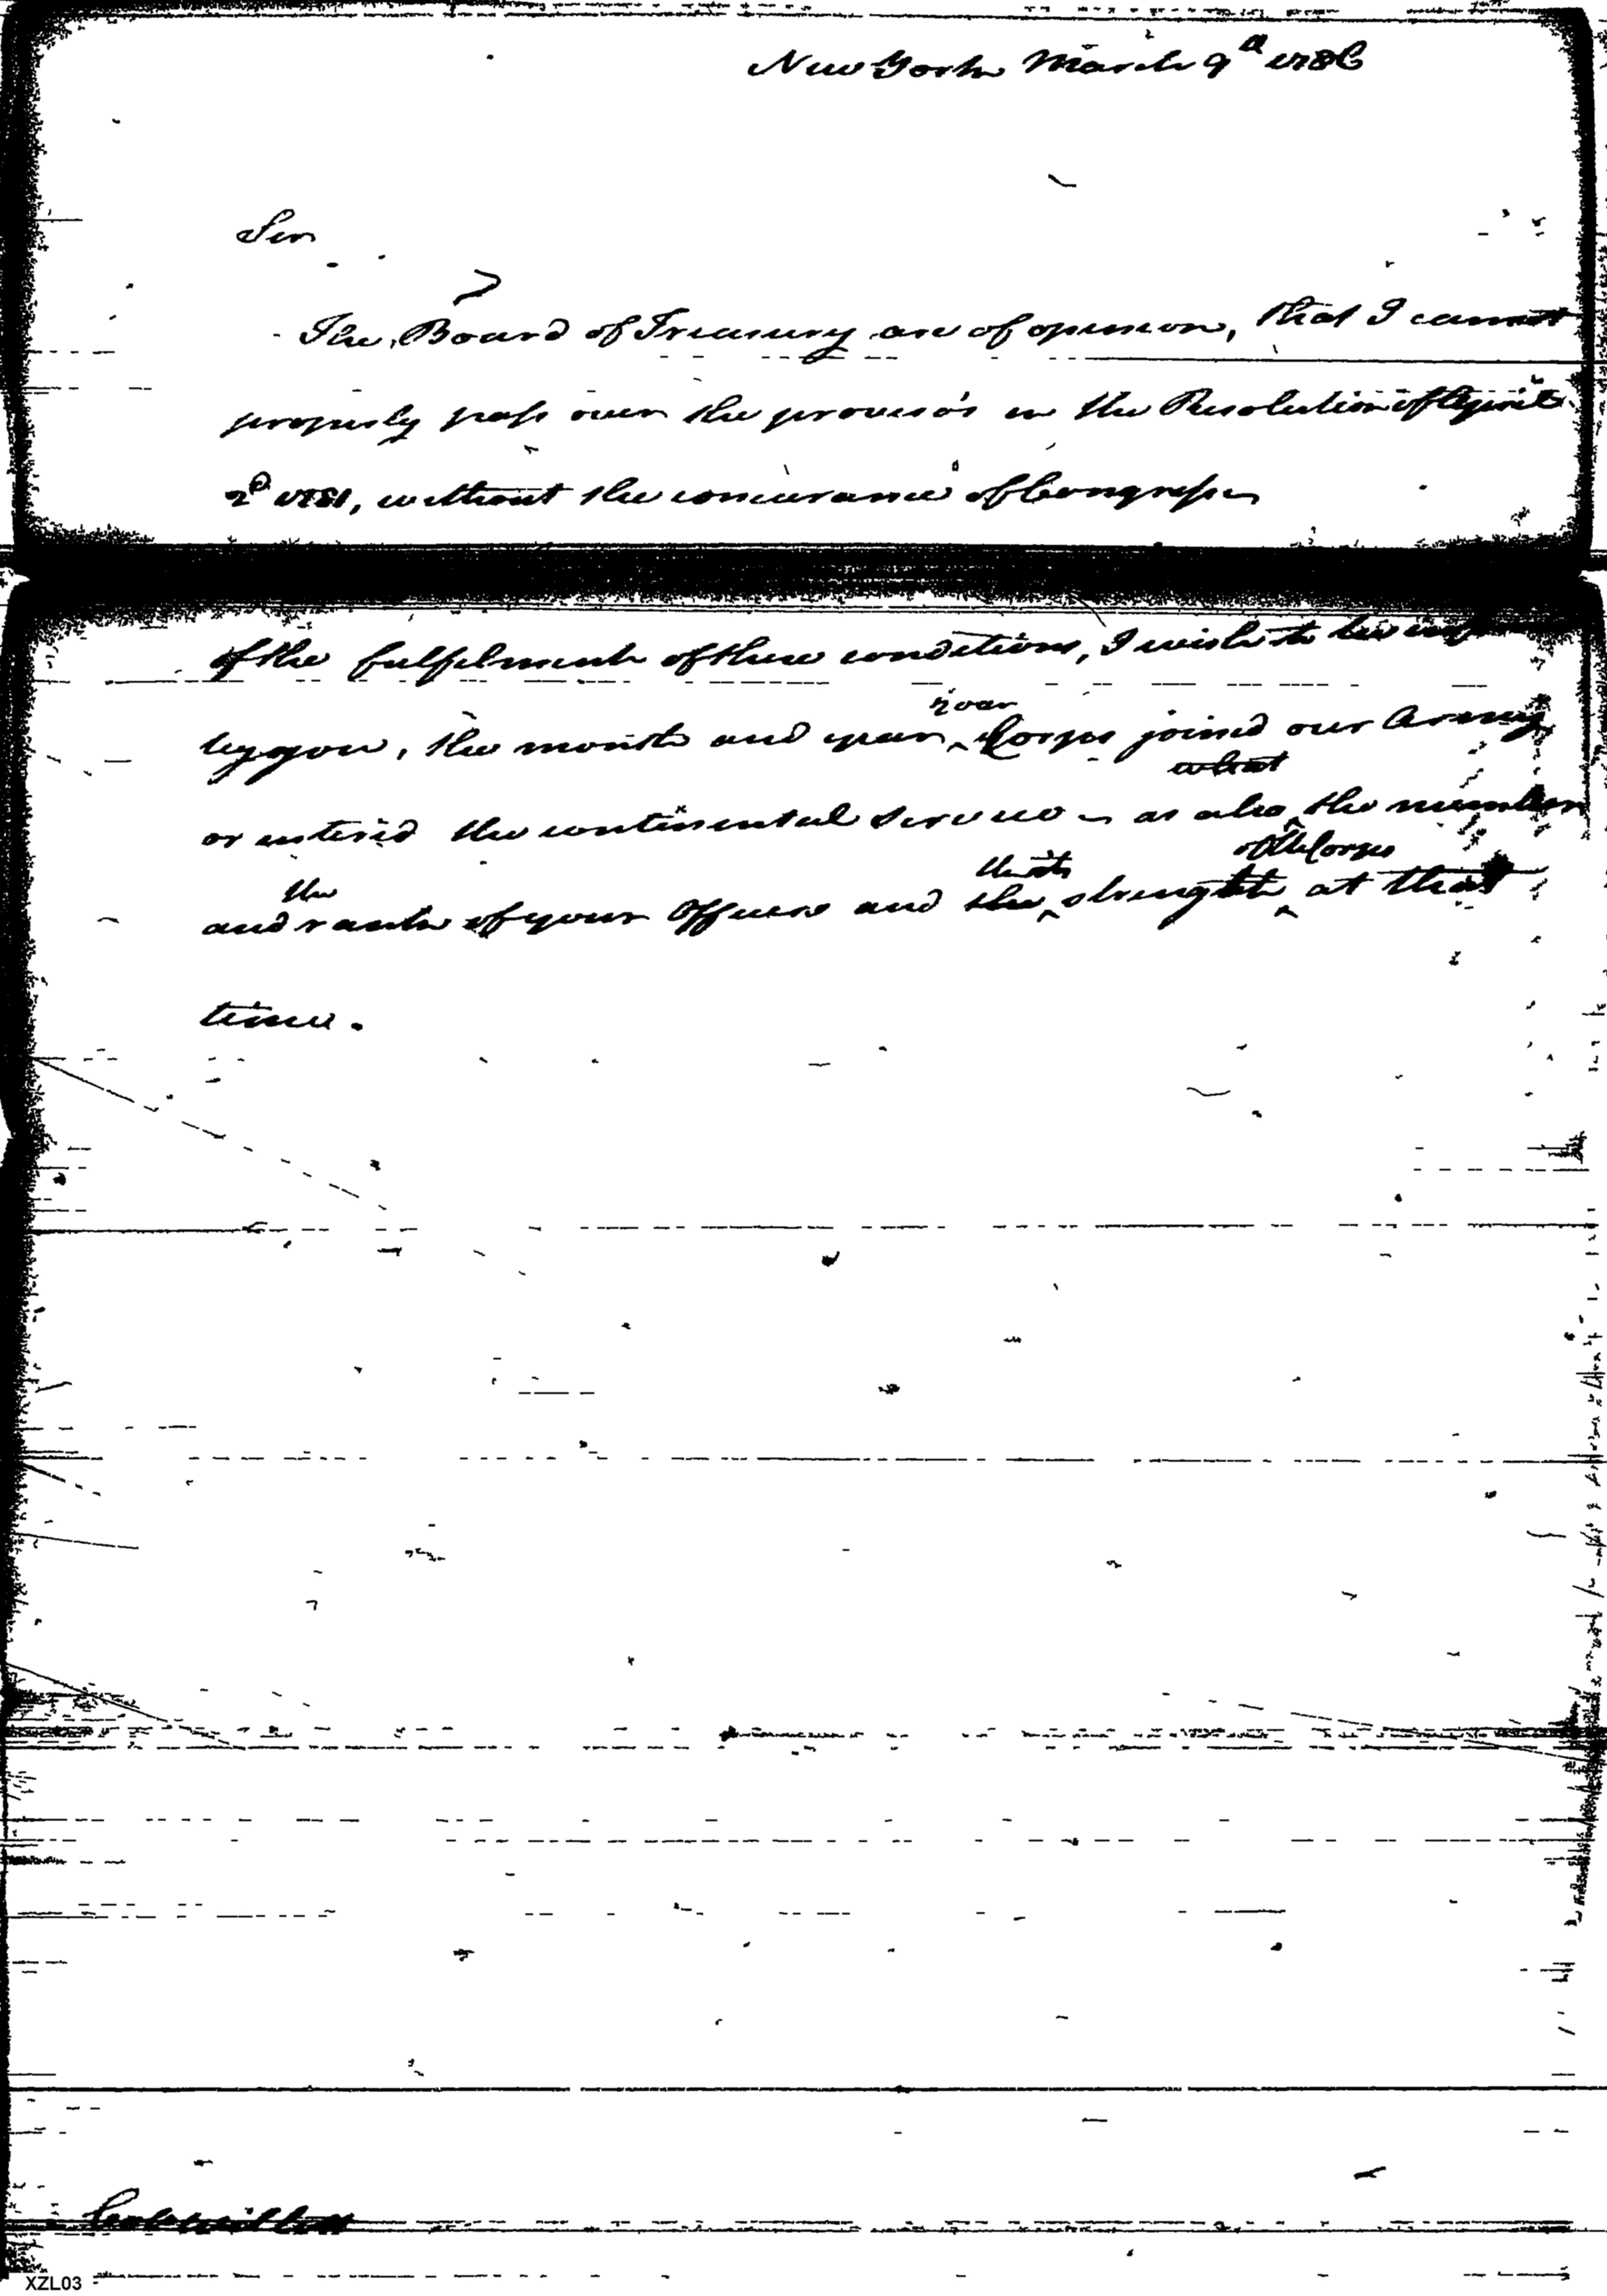 New York March 9th 1786
Sir
The Board of Treasury are of opinion, that I cannot
properly pass over the proviso's in the Resolution of April
2d 1781, without the concurance of Congress
of the fulfilment of these conditions, I wish to be
by you, the month and year your Corps joined our Army
or entered the continental service – as also what the number
and the rank of your Officers and the strength of the Corps at that
time.
Col Willett
XZL03